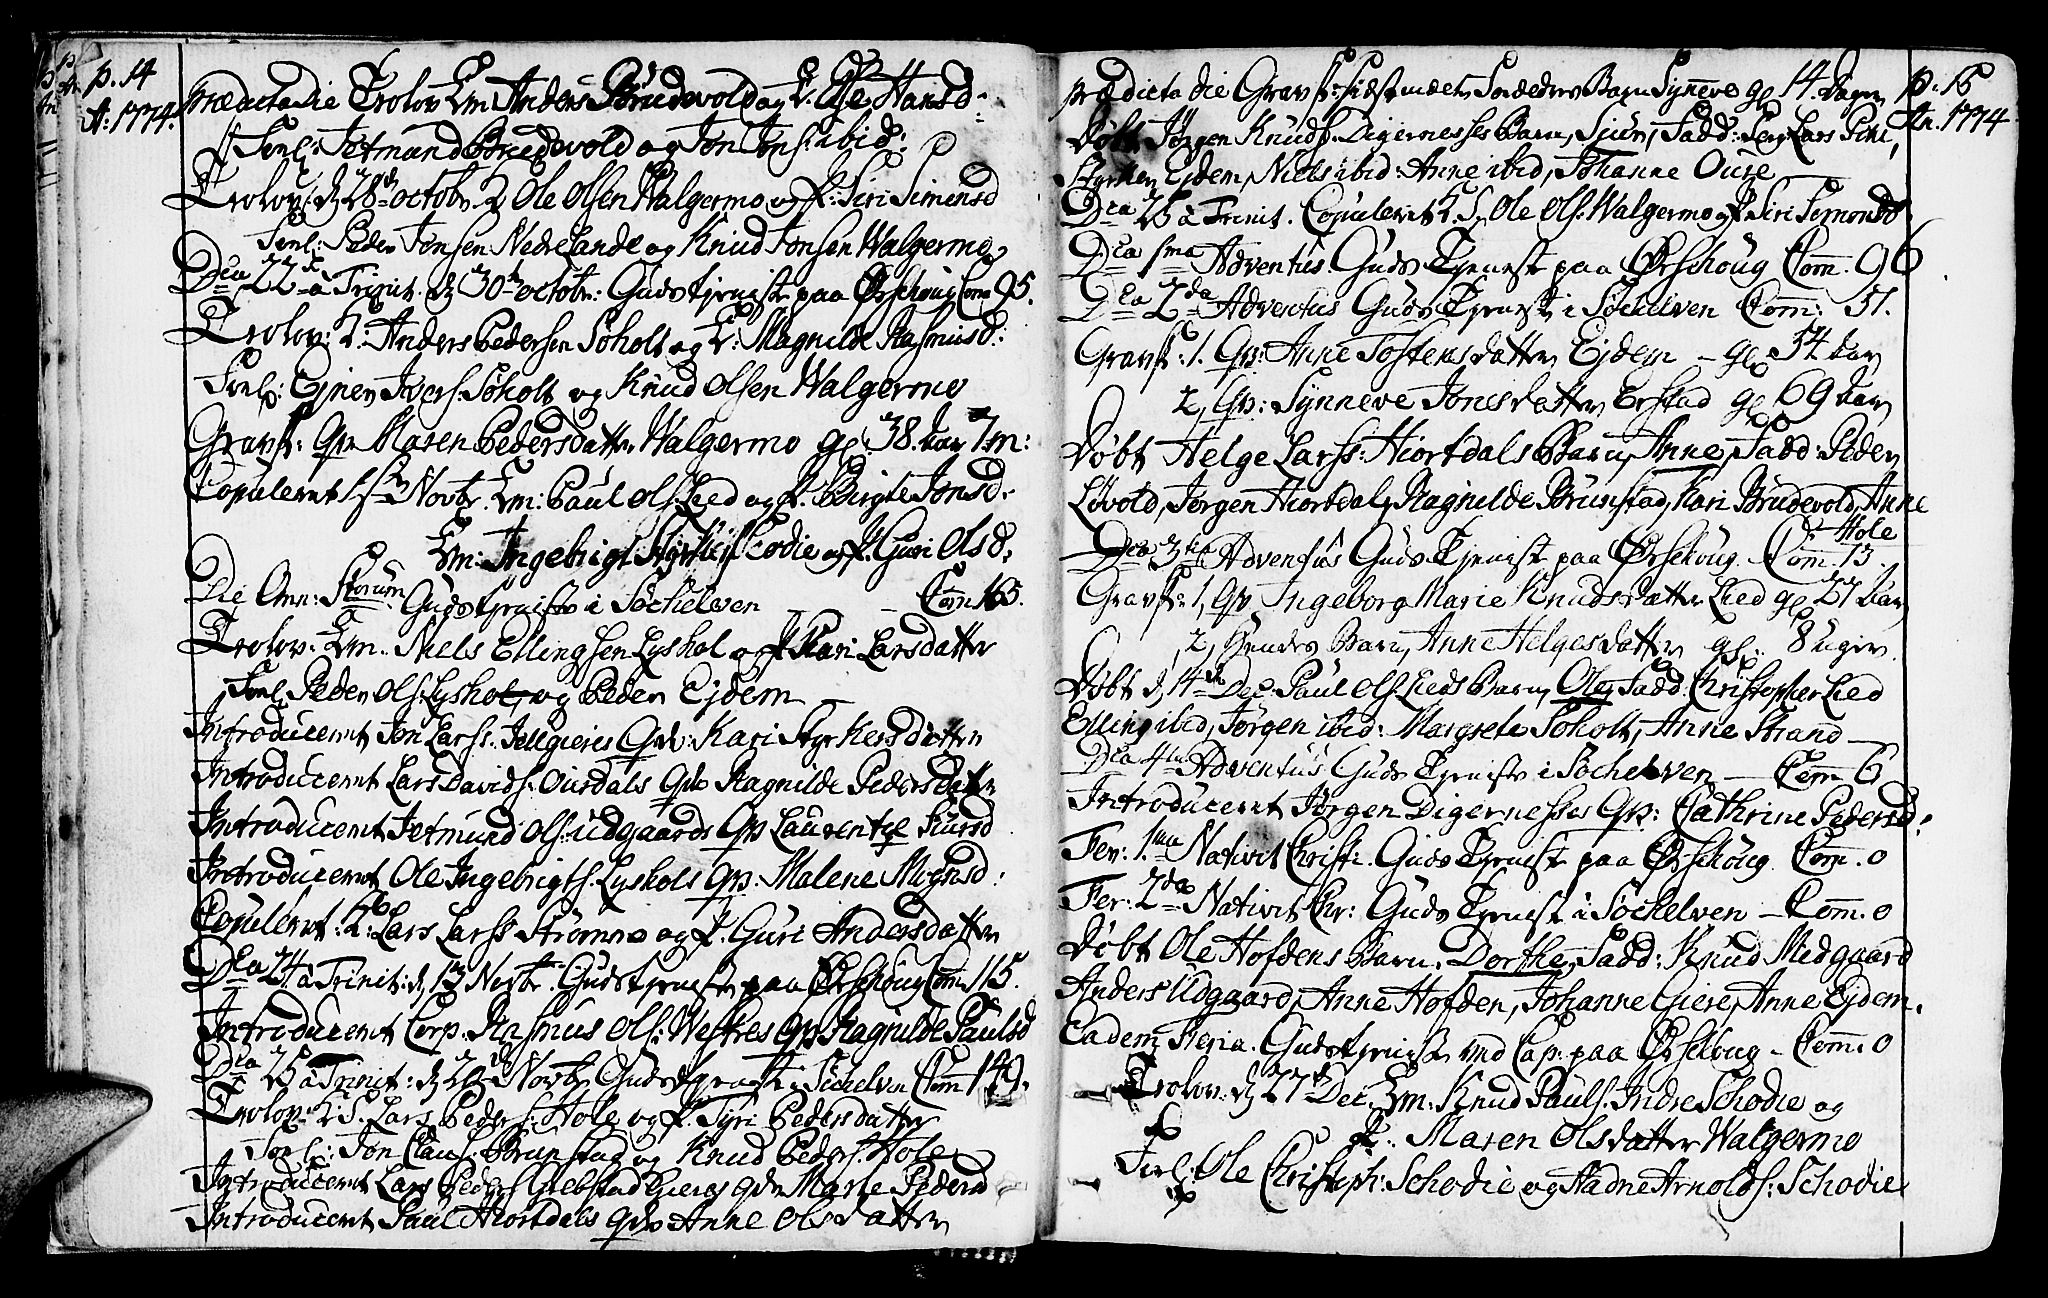 p. 14
A: 1774.
prædicta die Trolov. Em Anders Brudevold og P. Else Hansd:
Forl: Jetmund Brudevold og Jon Jons: ibid:
Trolov. d 28de octobr. Ole Olsen Walgermo og P: Siri Simensd
Forl: Peder Jensen Nedrelande og Knud Jonsen Walgermo
Dca 22 a Trinit. d 30te octobr: Guds tjeniste paa Ørschoug Com 95.
Trolov: Anders Pedersen Søholt og P: Magnilde Rasmusd:
Forl: Ejner Ivers: Søholt og Knud Olsen Walgermo
Gravf: Qv. Maren Pedersdatter Walgermo gl. 38. aar 7 m:
Copuleret Novbr. Em: Paul Ols: Lied og P. Birgte Jonsd.
Em: Ingebrigt Scodie og P. Guri Olsd:
Die Omn: Storum Guds tjeniste i Søchelven Com 165.
Trolov: Em: Niels Ellingsen Lyshol og P Kari Larsdatter
Forl. Peder Ols: Lyshol, og Peder Ejdem
Introduceret Jon Larss: Jellgieres Qv: Kari Styrkersdatter
Introduceret Lars Davids: Ousdals Qv Ragnilde Pedersdatter
Introduceret Jetmund Ols: udgaards Qv Laurentze Siursd
Introduceret Ole Ingebrigts. Lyshols Qv. Malene Mognsd:
Copuleret: Lars Larss Strømme og P. Guri Andersdatter
Dca 24 a Trinit: d 13 Novbr. Guds tjeniste paa Ørschoug Com 115.
Introduceret Corp. Rasmus Ols: Westres Qv Ragnilde Paulsd
Dca 25 a Trinit: d 20de Novbr Guds tjeniste i Søchelven Com 149.
Trolov: Lars Peders: Hole og P. Syri Pedersdatter
Forl: Jon Claus: Brunstad og Knud Peders: Hole
Introduceret Lars Peders Giebstad Gieres qv. Marie Pedersd
Introduceret Paul Hiortdals qv Anne Olsdatter
p. 15
An. 1774
prædicta die Gravf: Barn Synneve gl 14. dage
Døbt Jørgen Knuds. Digernesses Barn, Siur, Fadd: Lars
Styrker Ejdem, Niels ibid: Anne ibid, Johanne Ouse
Dca 26 a Trinit. Copuleret Ole Ols: Walgermo og P Siri Semonsd
Dca 1ma Adventus Guds Tjenist paa Ørschoug Com. 96
Dca 2da Adventus Guds Tjenist i Søchelven Com: 51.
Gravf: 1. Qv: Anne Tostensdatter Ejdem – gl 54 aar
2, Qv: Synneve Jonesdatter Erstad gl 69 aar
Døbt Helge Larss: Hiortdals Barn, Anne, Fadd: Peder
Løvold, Jørgen Hiortdal, Ragnilde Brunstad, Kari Brudevold, Anne
Hole
Dca 3tia Adventus Guds Tjenist paa Ørschoug. Com. 13.
Gravf: 1, Qv Ingeborg Marie Knudsdatter Lied gl 27 aar
2, hendes Barn, Anne Helgesdatter gl: 8 uger
Døbt d 14de Dec. Paul Ols: Lieds Barn, Ole, Fadd: Christopher Lied
Elling ibid, Jørgen ibid: Margrete Søholt, Anne Strand
Dca 4ta Adventus Guds Tjeniste i Søchelven – Com 6
Introduceret Jørgen Digernesses Qv: Cathrine Pedersd:
Fer. 1ma Nativit Christi. Guds Tjenist paa Ørschoug Com. 0
Fer: 2da Nativit Chr: Guds Tjenist i Søchelven – Com. 0
Døbt Ole Hofdens Barn. Dorthe, Fadd: Knud Midgaard
Anders Udgaard, Anne Hofden, Johanne Giere, Anne Ejdem.
Eadem Feria. Guds tjenist ved Cap. paa Ørschoug – Com: 0
Trolov. d 27de Dec. Em: Knud Pauls. Indre Schodie og
P: Maren Olsdatter Walgermo
Forl: Ole Christoph: Schodie og Aadne Arnolds: Schodie